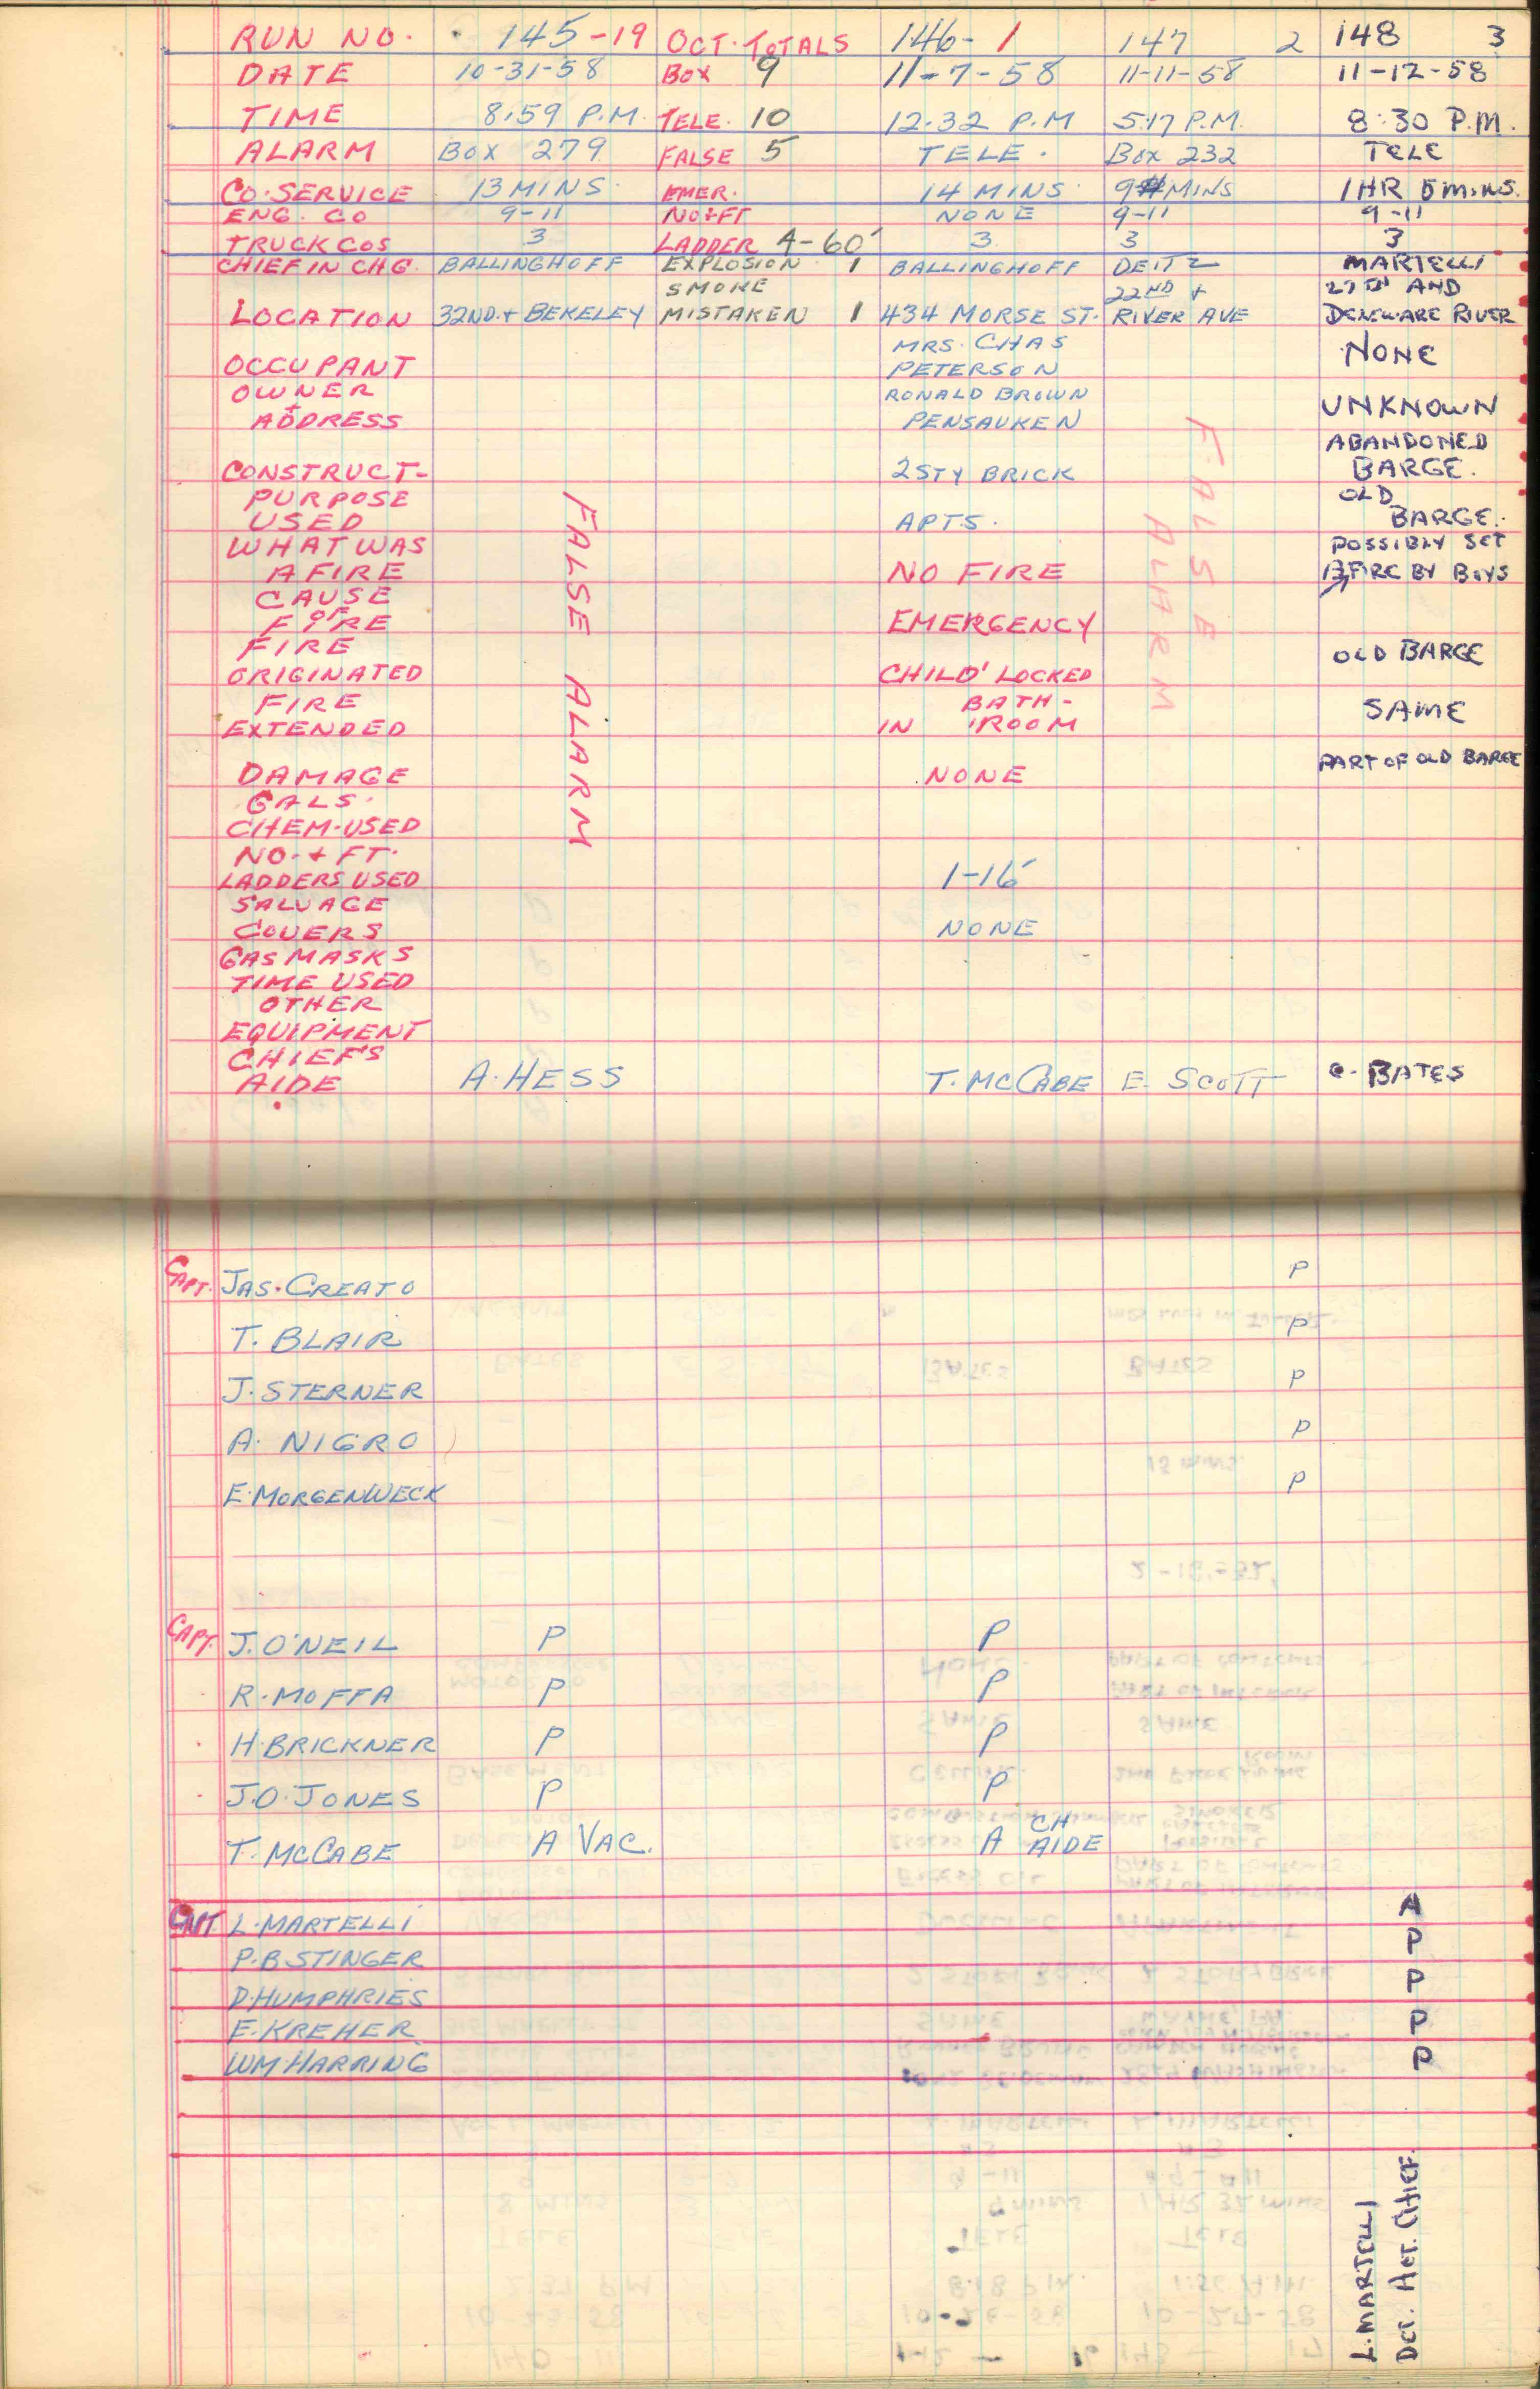 RUN NO. 145-19 OCT. TOTALS 146-1 147 2 148 3
DATE 10-31-58 BOX 9 11-7-58 11-11-58 11-12-58
TIME 8:59 P.M. TELE. 10 12.32 P.M 5:17 P.M. 8:30 P.M.
ALARM BOX 279 FALSE 5 TELE. BOX 232 TELE
CO. SERVICE 13 MINS. EMER. 14 MINS. 9 MINS 1HR 5 MINS.
ENG. CO 9-11 NO+FT NONE 9-11 9-11
TRUCK COS 3 LADDER 4-60' 3 3 3
CHIEF IN CHG. BALLINGHOFF EXPLOSION 1 BALLINGHOFF DEITZ MARTELLI
SMOKE 22ND + 27TH AND
LOCATION 32ND. + BEKELEY MISTAKEN 1 434 MORSE ST. RIVER AVE DELEWARE RIVER
MRS. CHAS
OCCUPANT PETERSON NONE
OWNER RONALD BROWN
+ ADDRESS PENSAUKEN UNKNOWN
ABANDONED
CONSTRUCT- 2 STY BRICK BARGE.
PURPOSE OLD
USED APTS. BARGE.
WHAT WAS POSSIBLY SET
A FIRE NO FIRE AFIRE BY BOYS
CAUSE
OF
FIRE EMERGENCY
FIRE OLD BARGE
ORIGINATED CHILD LOCKED
FIRE BATH- SAME
EXTENDED IN ROOM
DAMAGE NONE PART OF OLD BARGE
GALS.
CHEM. USED
NO. + FT.
LADDERS USED 1-16'
SALVAGE
COVERS NONE
GAS MASKS
TIME USED
OTHER
EQUIPMENT
CHIEF'S
AIDE A. HESS T. MCCABE E. SCOTT C. BATES
FALSE ALARM
FALSE
ALARM
CAPT. JAS. CREATO P
T. BLAIR P
J. STERNER P
A. NIGRO P
E. MORGENWECK P
CAPT. J. O'NEIL P P
R. MOFFA P P
H. BRICKNER P P
J.O. JONES P P
T. MCCABE A VAC. A CH AIDE
CAPT. L. MARTELLI A
P.B STINGER P
D. HUMPHRIES P
E. KREHER P
WM HARRING P
L. MARTELLI
Act. Chief.